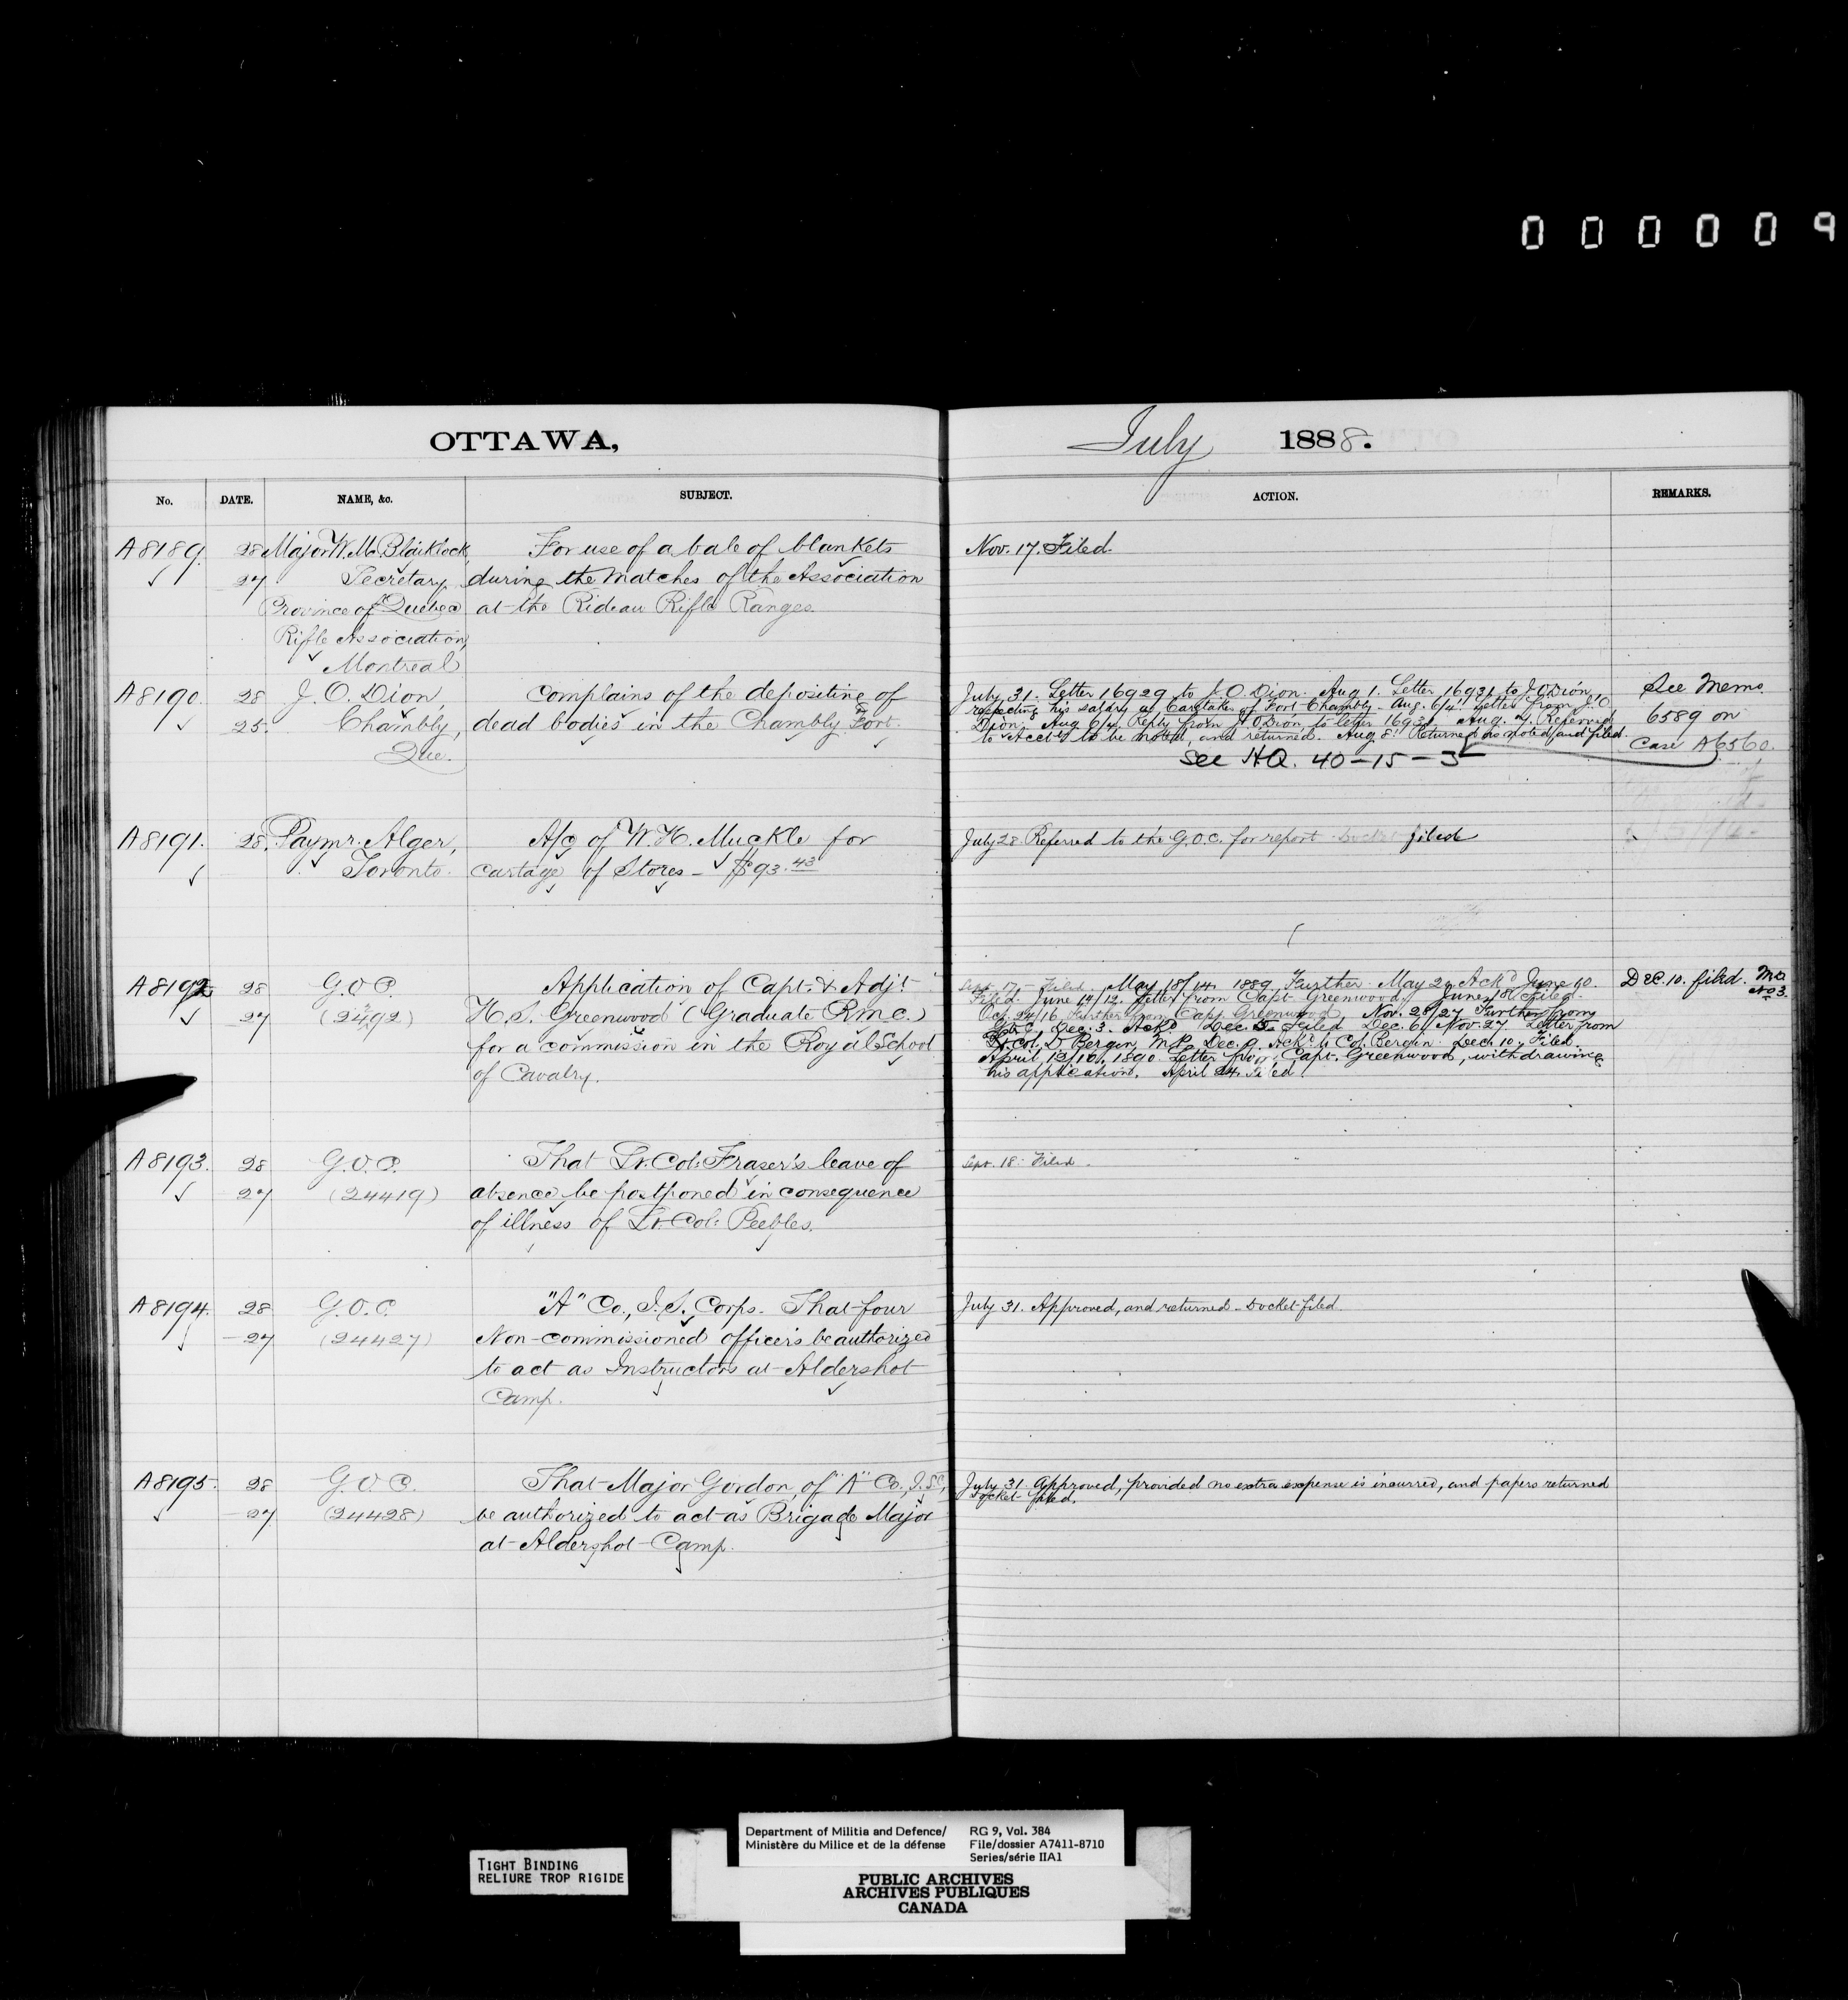 000009
OTTAWA,
July 1888.
No. DATE. NAME, &c. SUBJECT. ACTION. REMARKS.
A8189. 28 Major W. M. Blaiklock, For use of a bale of blankets Nov. 17. Filed.
27 Secretary, during the matches of the Association
Province of Quebec at the Rideau Rifle Ranges.
Rifle Association,
Montreal
A8190. 28 J. O. Dion, Complains of the depositing of
25. Chambly, dead bodies in the Chambly Fort.
Que.
July 31. Letter 16929 to J. O. Dion. Aug 1. Letter 16931 to J. O Dion,
respecting his salary as Caretaker of Fort Chambly. Aug. 6/4. Letter from J. O.
Dion. Aug 6/4 Reply from J. O Dion to letter 16931. Aug. 7. Referred
to Acct to be noted, and returned. Aug 8. Returned as noted and filed.
See HQ. 40-15-5
See Memo
6589 on
Case A6560.
A8191. 28. Paymr. Alger, A/c of W. H. Muckle for July 28 Referred to the G.O.C. for report Docket filed
Toronto. cartage of Stores - $93.43
A8192 28 G.O.C. Application of Capt. & Adjt
27 (2492) H. S. Greenwood (Graduate R.M.C.)
for a commission in the Royal School
of Cavalry.
Sept. 17 Filed. May 18/14 1889 Further. May 22 Ackd June 10.
Filed. June 14/12. Letter from Capt Greenwood. June 18 Filed.
Oct. 24/16 Further from Capt. Greenwood, Nov. 28/27 Further from
G.O.C, Dec. 3. Ackd Dec. 5 Filed Dec. 6/Nov. 27 Letter from
Lt. Col. D Bergin, M.P. Dec. 9. Ackd to Col. Bergin. Dec. 10. Filed
April 12/10, 1890 Letter from Capt. Greenwood, withdrawing
his application. April 24. Filed.
Dec. 10. filed. Mo
No 3.
A8193. 28 G.O.C. That Lt. Col: Fraser's leave of Sept. 18. Filed.
27 (24419) absence be postponed in consequence
of illness of Lt. Col: Peebles.
A8194. 28 G.O.C. "A" Co., I. S. Corps. That four July 31. Approved, and returned - Docket filed.
27 (24427) Non-commissioned officers be authorized
to act as Instructors at Aldershot
Camp.
A8195. 28 G.O.C. That Major Gordon, of "A" Co., I.S.C., July 31 Approved, provided no extra expense is incurred, and papers returned
Docket filed.
27 (24428) be authorized to act as Brigade Major
at Aldershot Camp.
TIGHT BINDING
RELIURE TROP RIGIDE
Department of Militia and Defence/
Ministère du Milice et de la défense
RG 9, Vol. 384
File/dossier A7411-8710
Series/série IIA1
PUBLIC ARCHIVES
ARCHIVES PUBLIQUES
CANADA